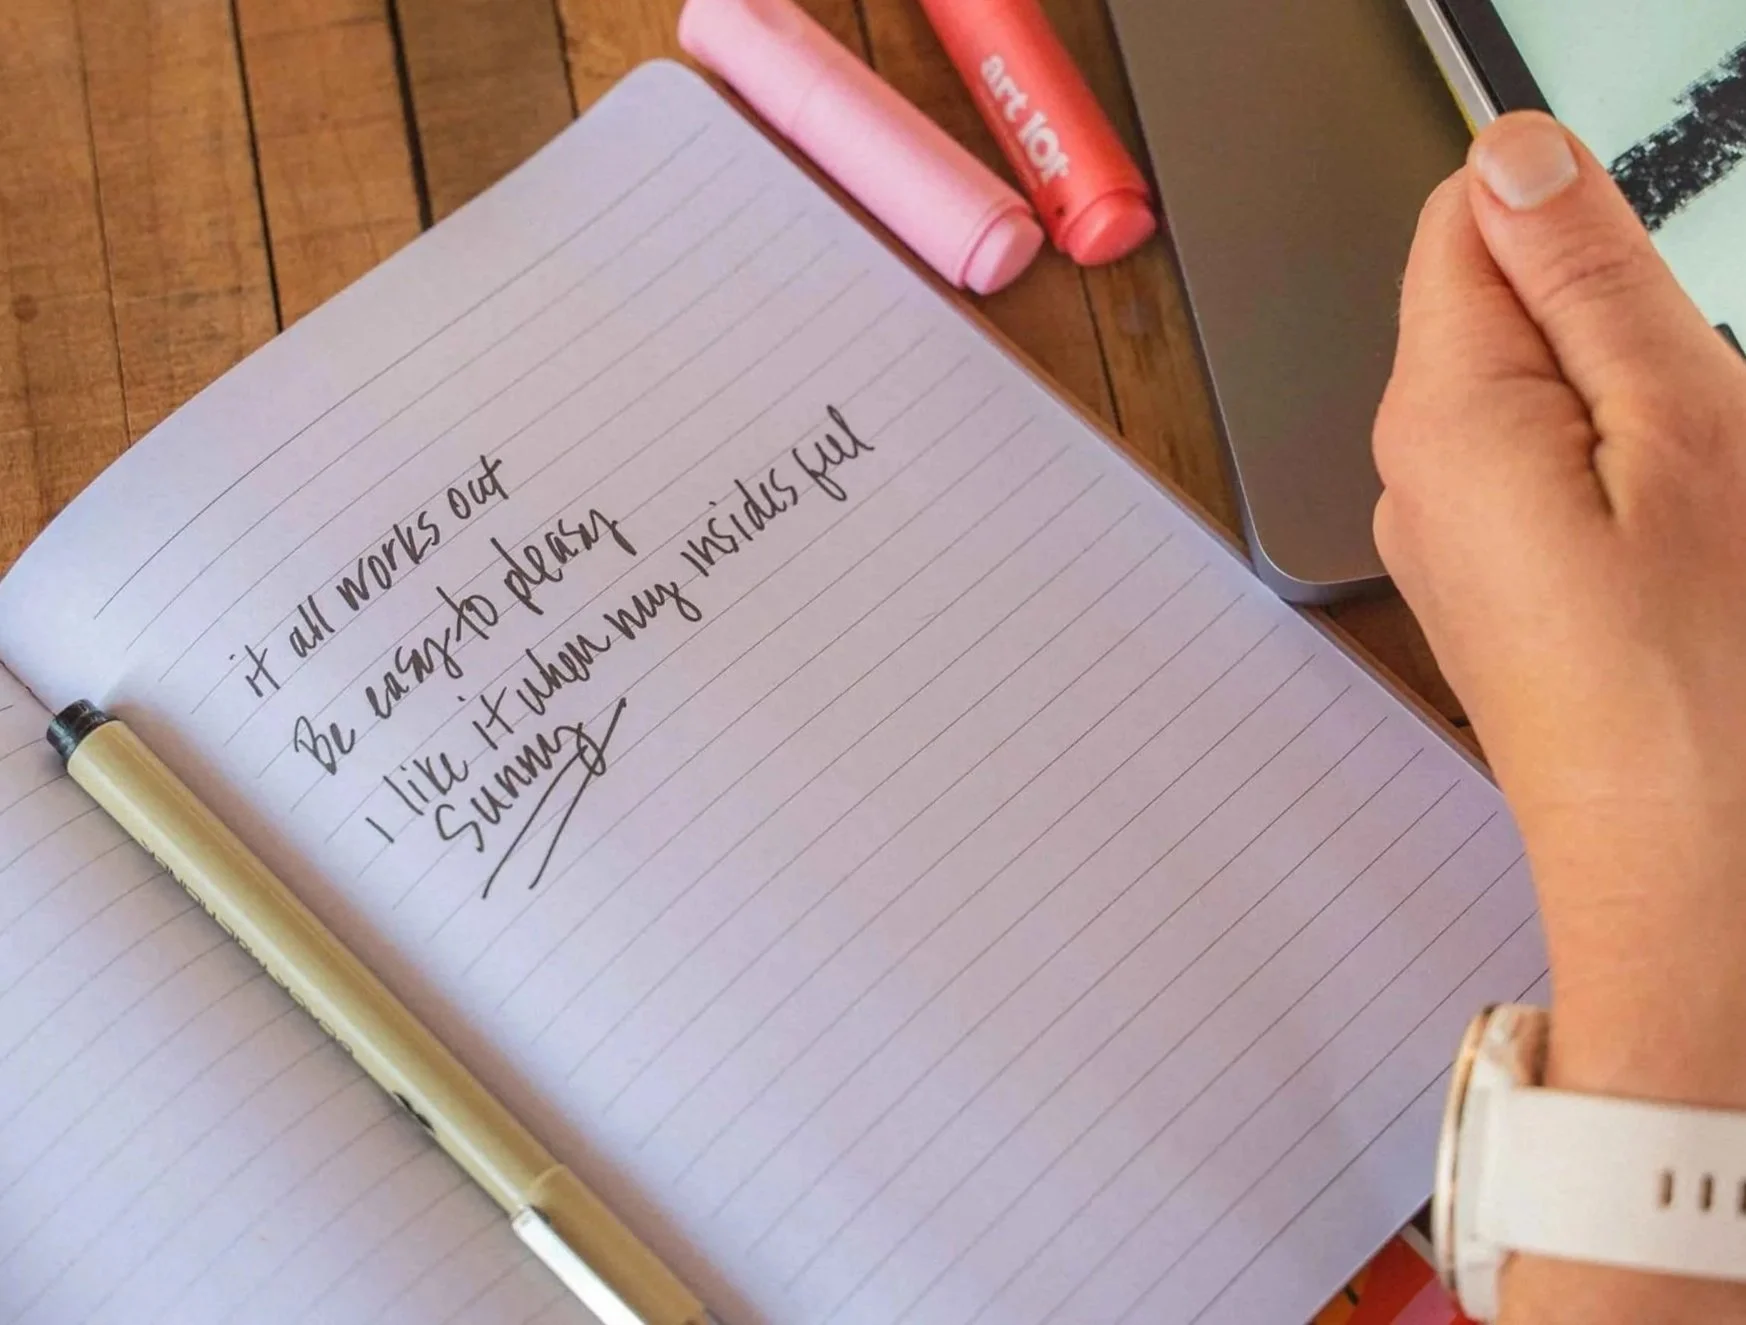 it all works out
Be easy to pleasy
I like it when my insides feel
Sunny
art 101